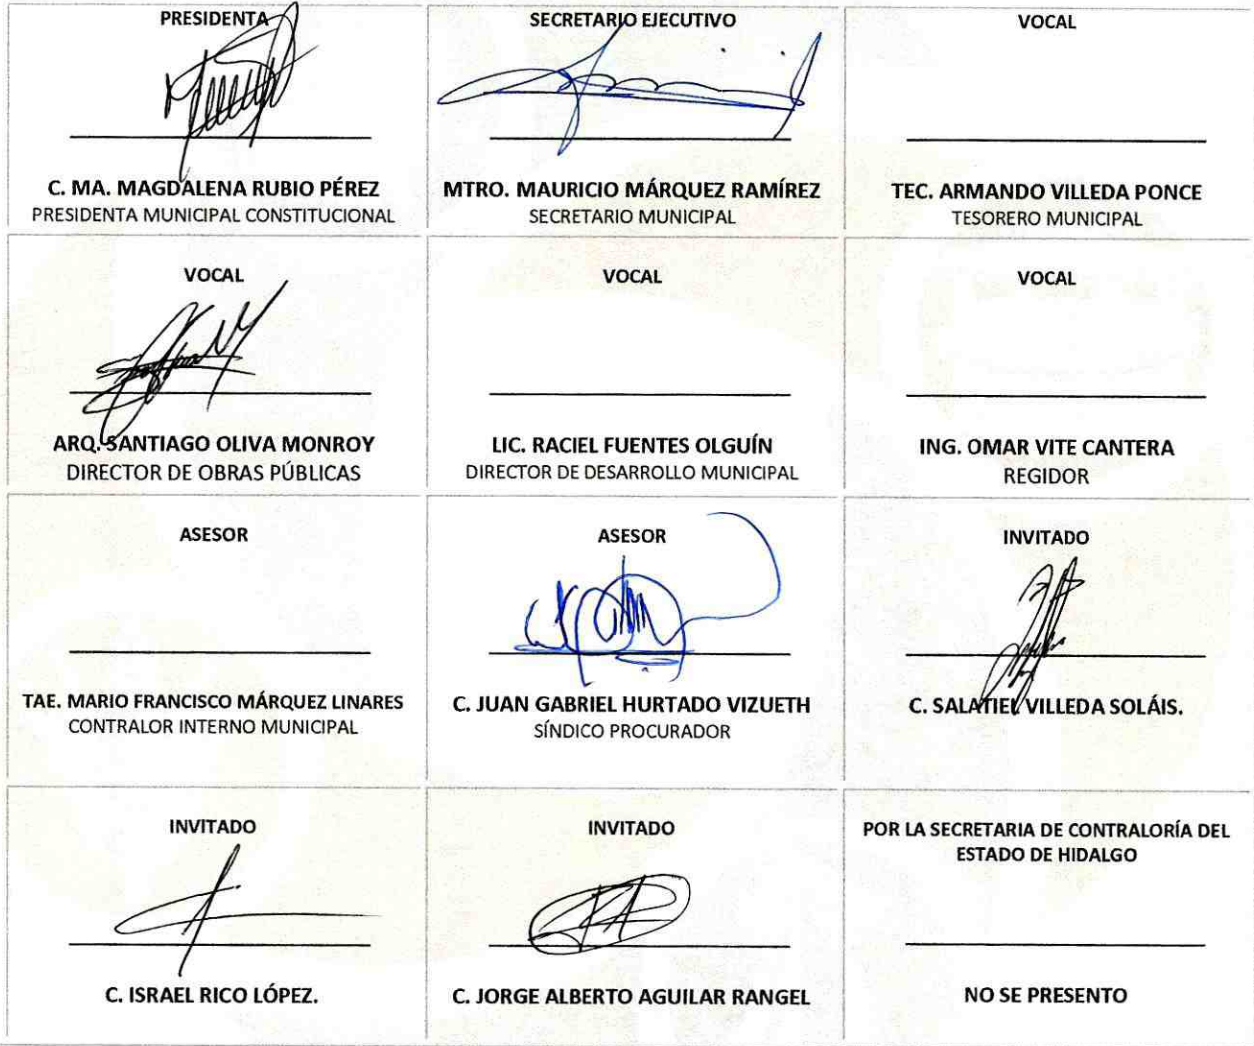 PRESIDENTA
C. MA. MAGDALENA RUBIO PÉREZ
PRESIDENTA MUNICIPAL CONSTITUCIONAL
SECRETARIO EJECUTIVO
MTRO. MAURICIO MÁRQUEZ RAMÍREZ
SECRETARIO MUNICIPAL
VOCAL
TEC. ARMANDO VILLEDA PONCE
TESORERO MUNICIPAL
VOCAL
ARQ. SANTIAGO OLIVA MONROY
DIRECTOR DE OBRAS PÚBLICAS
VOCAL
LIC. RACIEL FUENTES OLGUÍN
DIRECTOR DE DESARROLLO MUNICIPAL
VOCAL
ING. OMAR VITE CANTERA
REGIDOR
ASESOR
TAE. MARIO FRANCISCO MÁRQUEZ LINARES
CONTRALOR INTERNO MUNICIPAL
ASESOR
C. JUAN GABRIEL HURTADO VIZUETH
SÍNDICO PROCURADOR
INVITADO
C. SALATIEL VILLEDA SOLÁIS.
INVITADO
C. ISRAEL RICO LÓPEZ.
INVITADO
C. JORGE ALBERTO AGUILAR RANGEL
POR LA SECRETARIA DE CONTRALORÍA DEL
ESTADO DE HIDALGO
NO SE PRESENTO